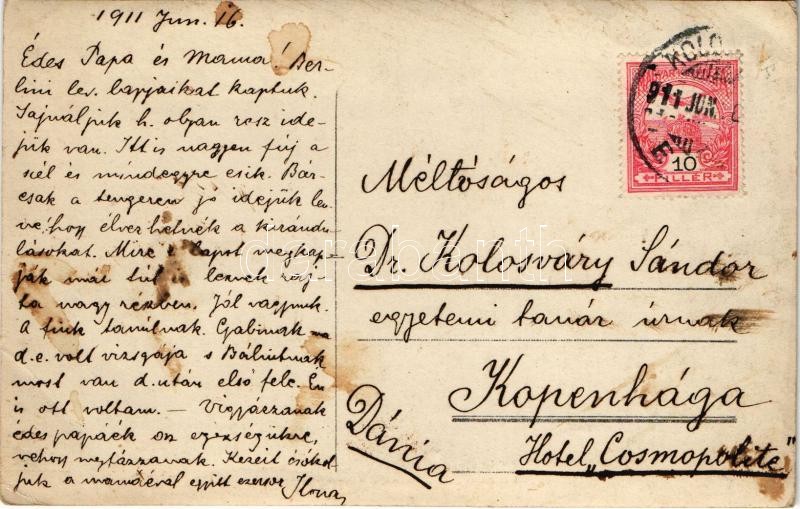 1911 Jun. 16.
Édes Papa és Mama! Ber-
lini lev. lapjaikat kaptuk.
Sajnáljuk h. olyan rosz ide-
jük van. Itt is nagyon fúj a
szél és mindegyre esik. Bár-
csak a tengeren jó idejük len-
ne, hogy élvezhetnék a kirándu-
lásokat. Mire e lapot megkap-
ják már túl is lesznek raj-
ta nagy részben. Jól vagyunk.
A fiúk tanulnak. Gabinak
d.e. volt vizsgája s Bálintnak
most van d.után első fele. Én
is ott voltam. — Vigyázzanak
édes papáék az egészségükre,
nehogy megfázzanak. Kezeit csókol-
juk a mamáéval együtt ezerszer Ilona
KOLO
911 JUN.
MAGYAR
10
FILLÉR
Méltóságos
Dr. Kolosváry Sándor
egyetemi tanár úrnak
Kopenhága
Hotel „Cosmopolite"
Dánia
darabanth